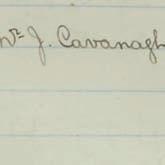 Mr J. Cavanagh